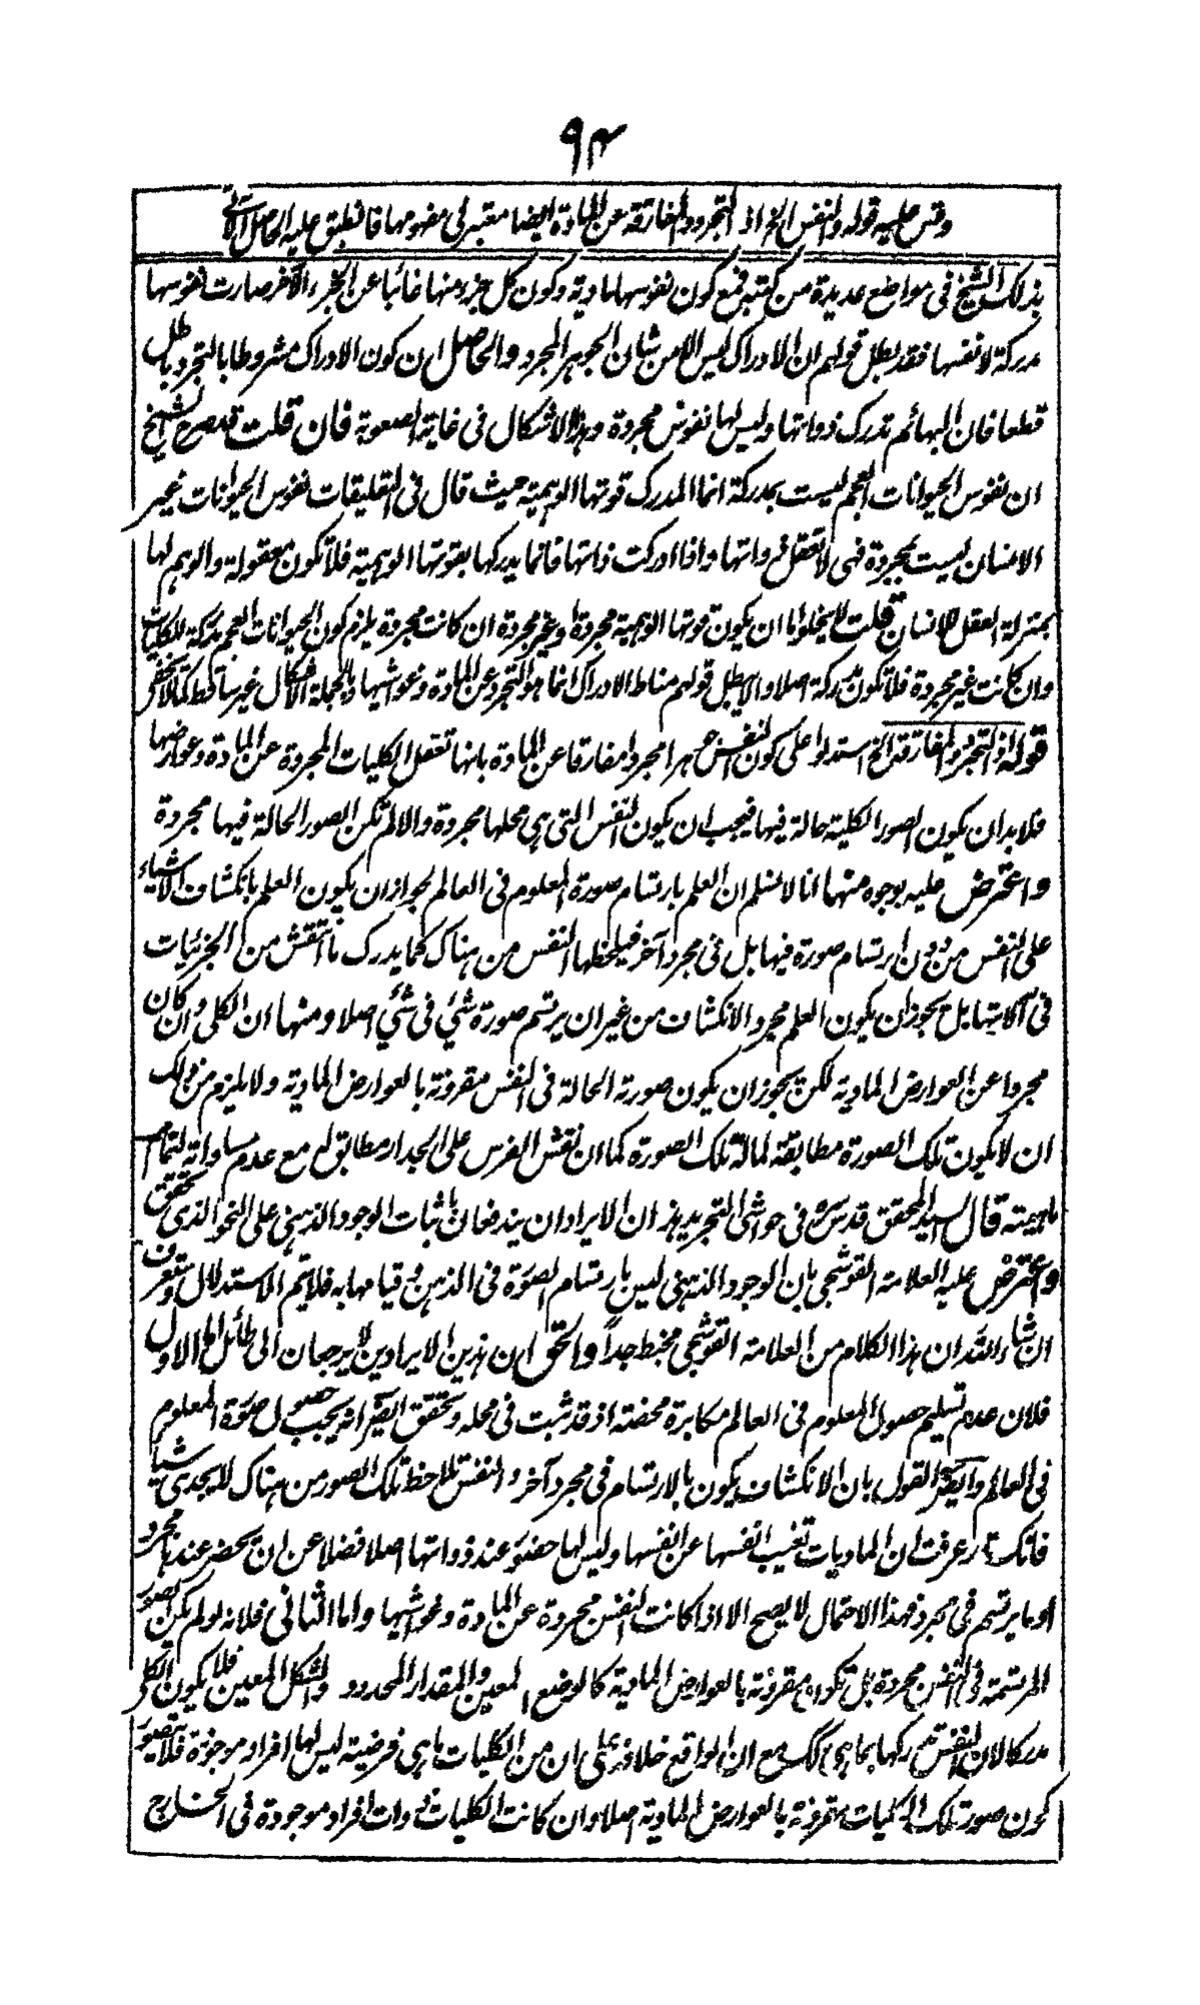 ٩٤
وقس عليه قوله والنفس الخ اذ التجرد والمفارقة عن المادة ايضا معتبر في مفهومها فانطبق عليه الحاصل الآتي
بذلك الشيخ في مواضع عديدة من كتبه فمع كون نفوسها مادية وكون كل جزء منها غائبا عن الجزء الآخر صارت نفوسها
مدركة لانفسها فقد بطل قولهم ان الادراك ليس الا من شان الجوهر المجرد والحاصل ان كون الادراك مشروطا بالتجرد باطل
قطعا فان البهائم تدرك ذواتها وليس لها نفوس مجردة وهذا الاشكال في غاية الصعوبة فان قلت قد صرح الشيخ
ان نفوس الحيوانات العجم ليست بمدركة انما المدرك قوتها الوهمية حيث قال في التعليقات نفوس الحيوانات غير
الانسان ليست بمجردة فهي لا تعقل ذواتها واذا ادركت ذاتها فانما يدركها بقوتها الوهمية فلا تكون معقولة والوهم لها
بمنزلة العقل للانسان قلت لا يخلو اما ان يكون قوتها الوهمية مجردة او غير مجردة ان كانت مجردة يلزم كون الحيوانات العجم مدركة للكليات
وان كانت غير مجردة فلا تكون مدركة اصلا والا بطل قولهم مناط الادراك انما هو التجرد عن المادة وغواشيها وبالجملة الاشكال غير ساقط كما لا يخفى
قوله اذ التجرد والمفارقة الخ استدلوا على كون النفس جوهرا مجردا مفارقا عن المادة بانها تعقل الكليات المجردة عن المادة وعوارضها
فلا بد ان يكون الصور الكلية حالة فيها فيجب ان يكون النفس التي هي محلها مجردة والا لم تكن الصور الحالة فيها مجردة
واعترض عليه بوجوه منها انا لا نسلم ان العلم بارتسام صورة المعلوم في العالم لجواز ان يكون العلم بانكشاف الاشياء
على النفس من دون ارتسام صورة فيها بل في مجرد آخر فيلحظها النفس من هناك كما يدرك ما انتقش من الجزئيات
في آلاتها بل يجوز ان يكون العلم مجرد الانكشاف من غير ان يرتسم صورة شئ في شئ اصلا ومنها ان الكلي وان كان
مجردا عن العوارض المادية لكن يجوز ان يكون صورته الحالة في النفس مقرونة بالعوارض المادية ولا يلزم من ذلك
ان لا يكون تلك الصورة مطابقة لما له تلك الصورة كما ان نقش الفرس على الجدار مطابق له مع عدم مساواته لتمام
ماهيته قال السيد المحقق قدس سره في حواشي التجريد هذان الايرادان يندفعان باثبات الوجود الذهني على النحو الذي تحقق
واعترض عليه العلامة القوشجي بان الوجود الذهني ليس بارتسام الصورة في الذهن وقيامها به فلا يتم الاستدلال وستعرف
ان شاء الله ان هذا الكلام من العلامة القوشجي مخبط جدا والحق ان هذين الايرادين لا يرجعان الى طائل اما الاول
فلان عدم تسليم حصول المعلوم في العالم مكابرة محضة اذ قد ثبت في محله وتحقق ايضا انه يجب حصول صورة المعلوم
في العالم وايضا القول بان الانكشاف يكون بالارتسام في مجرد آخر والنفس تلاحظ تلك الصور من هناك لا يجدي شيئا
فانك قد عرفت ان الماديات تغيب انفسها عن انفسها وليس لها حضور عند ذواتها اصلا فضلا عن ان يحضر عندها مجرد
او ما يرتسم في مجرد فهذا الاحتمال لا يصح الا اذا كانت النفس مجردة عن المادة وغواشيها واما الثاني فلانه لو لم يكن الصور
المرتسمة في النفس مجردة بل تكون مقرونة بالعوارض المادية كالوضع المعين والمقدار المحدود والشكل المعين فلا يكون الكلي
مدركا لان النفس تدركها بما هي كذلك مع ان الواقع خلافه على ان من الكليات ما هي فرضية ليس لها افراد موجودة فلا يتصور
كون صورة تلك الكليات مقرونة بالعوارض المادية اصلا وان كانت الكليات ذوات افراد موجودة في الخارج